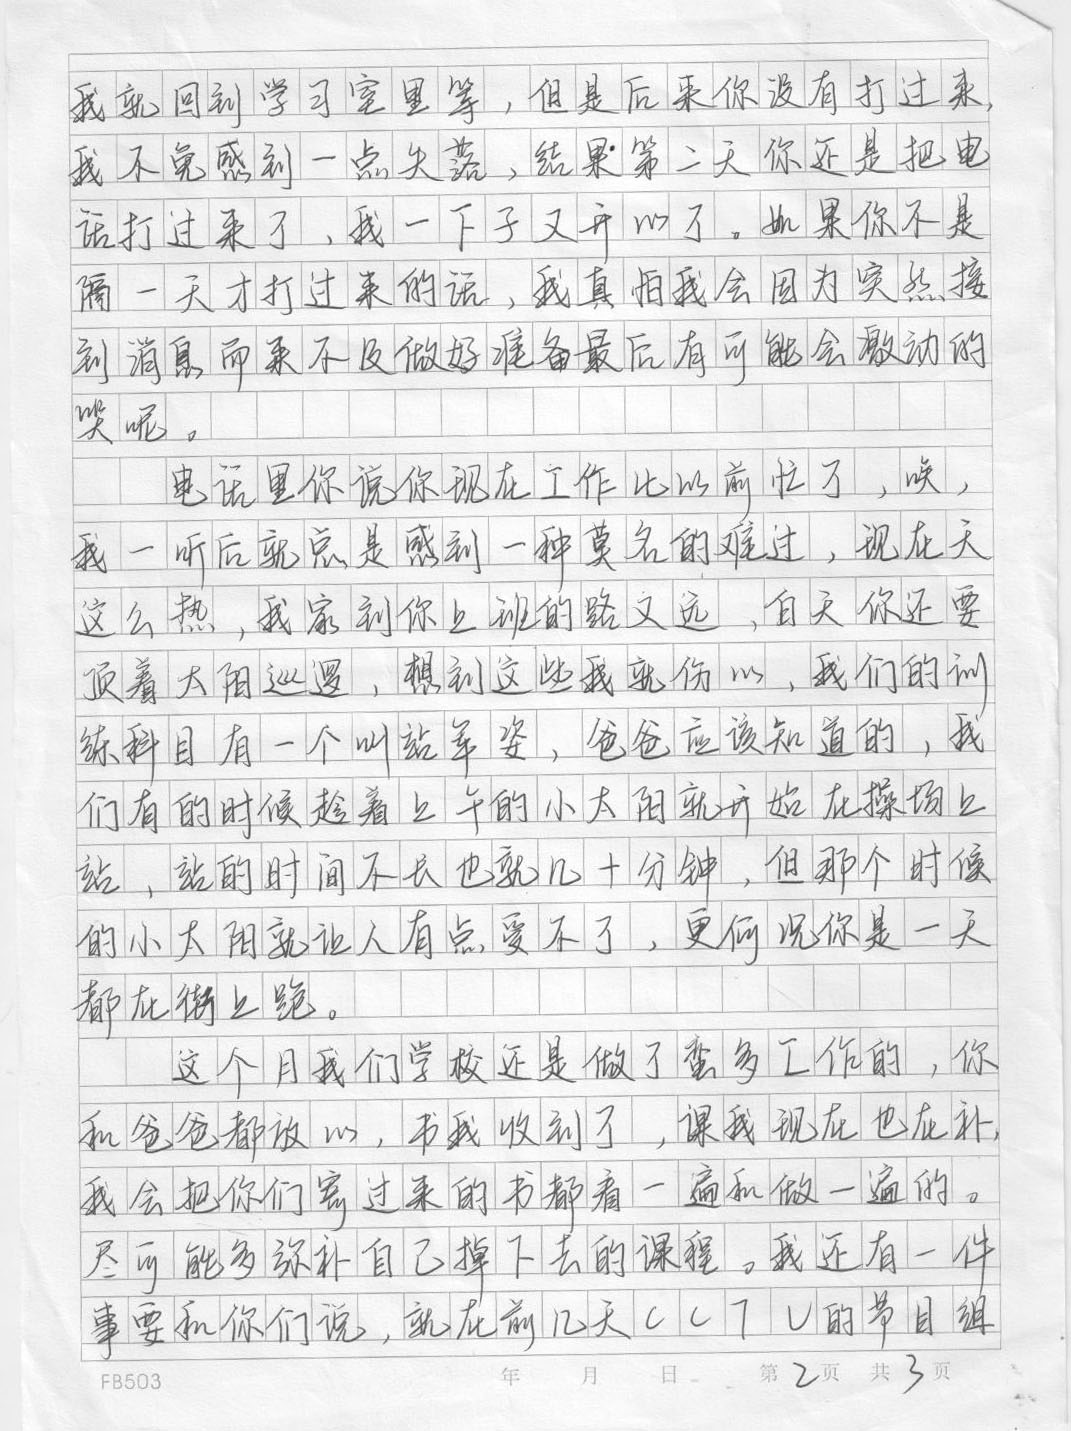 我就回到学习室里等，但是后来你没有打过来，
我不免感到一点失落，结果第二天你还是把电
话打过来了，我一下子又开心了。如果你不是
隔一天才打过来的话，我真怕我会因为突然接
到消息而来不及做好准备最后有可能会激动的
哭呢。
电话里你说你现在工作比以前忙了，唉，
我一听后就总是感到一种莫名的难过，现在天
这么热，我家到你上班的路又远，白天你还要
顶着太阳巡逻，想到这些我就伤心，我们的训
练科目有一个叫站军姿，爸爸应该知道的，我
们有的时候趁着上午的小太阳就开始在操场上
站，站的时间不长也就几十分钟，但那个时候
的小太阳就让人有点受不了，更何况你是一天
都在街上跑。
这个月我们学校还是做了蛮多工作的，你
和爸爸都放心，书我收到了，课我现在也在补，
我会把你们寄过来的书都看一遍和做一遍的。
尽可能多弥补自己掉下去的课程。我还有一件
事要和你们说，就在前几天CCTV的节目组
FB503 年 月 日 第2页 共3页